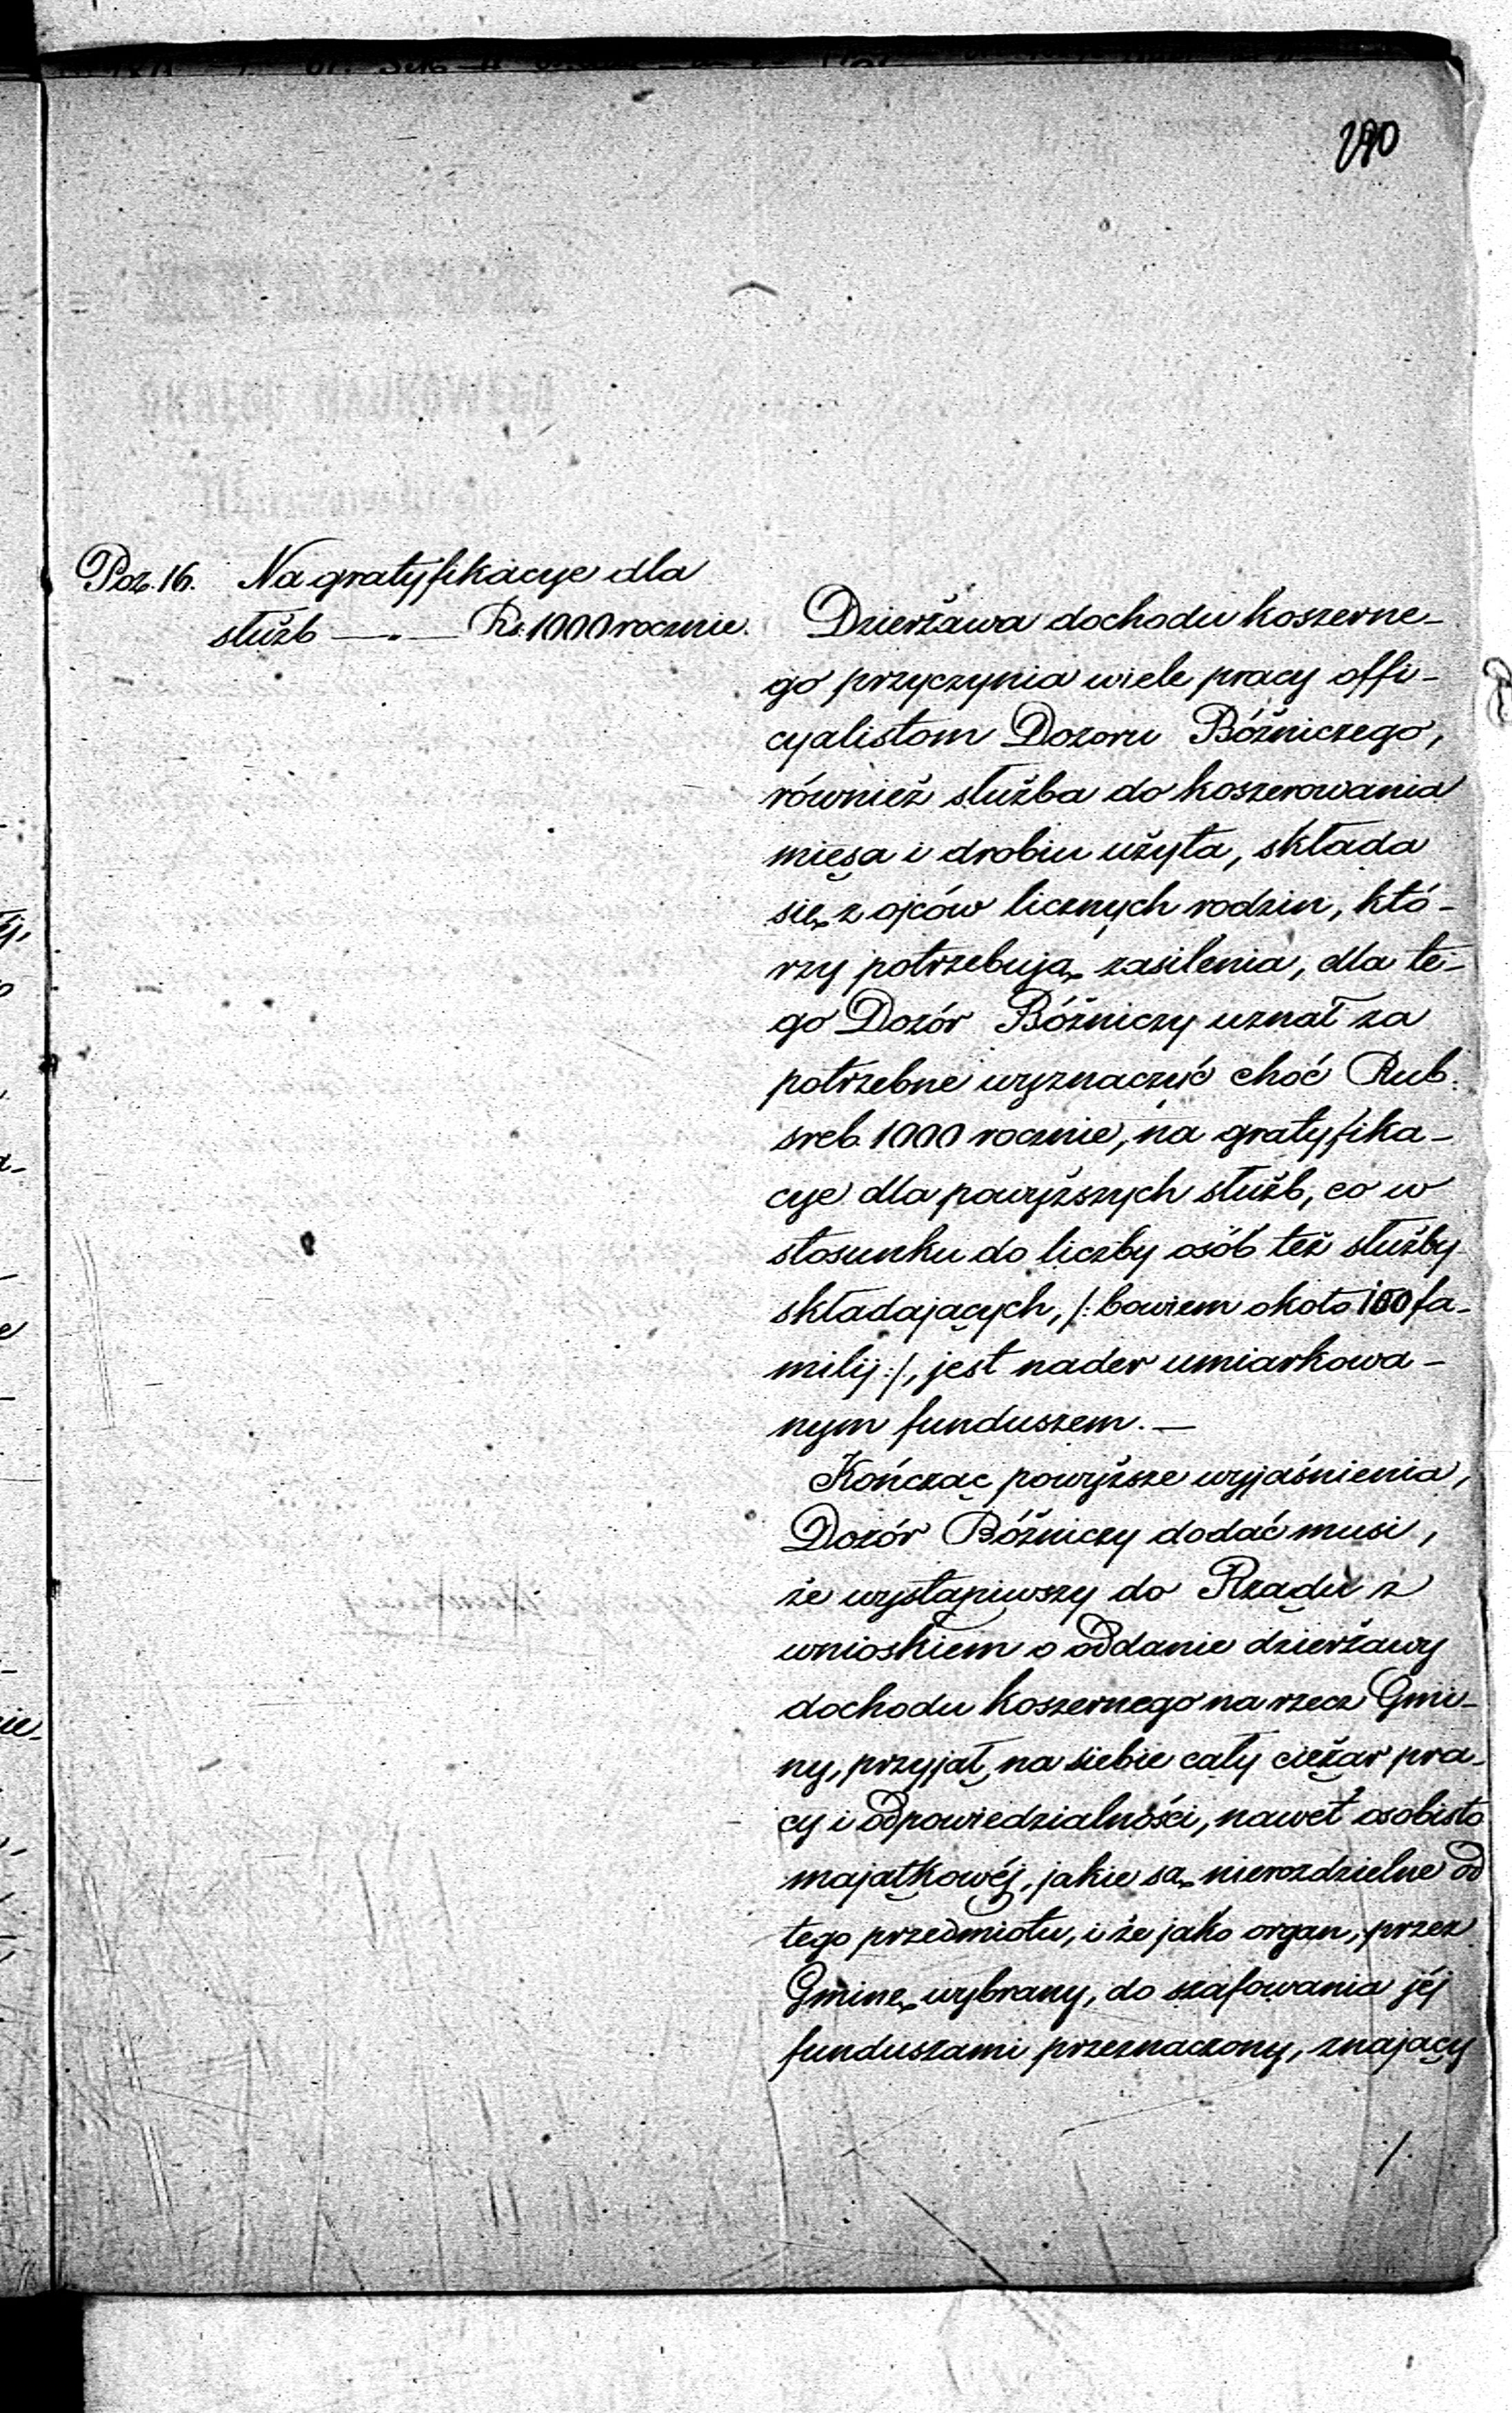 290
Poz. 16. Na gratyfikacye dla
służb —.— Rs. 1000 rocznie.
Dzierżawa dochodu koszerne-
go przyczynia wiele pracy offi-
cyalistom Dozoru Bóżniczego,
również służba do koszerowania
mięsa i drobiu użyta, składa
się z ojców licznych rodzin, któ-
rzy potrzebują zasilenia, dla te-
go Dozór Bóżniczy uznał za
potrzebne wyznaczyć choć Rub.
sreb. 1000 rocznie, na gratyfika-
cye dla powyższych służb, co w
stosunku do liczby osób też służby
składających, /: bowiem około 100 fa-
milij :/, jest nader umiarkowa-
nym funduszem. —
Kończąc powyższe wyjaśnienia,
Dozór Bóżniczy dodać musi,
że wystąpiwszy do Rządu z
wnioskiem o oddanie dzierżawy
dochodu koszernego na rzecz Gmi-
ny, przyjął na siebie cały ciężar pra-
cy i odpowiedzialności, nawet osobisto
majątkowéj, jakie są nierozdzielne od
tego przedmiotu, i że jako organ, przez
Gminę wybrany, do szafowania jéj
funduszami przeznaczony, znający
./.